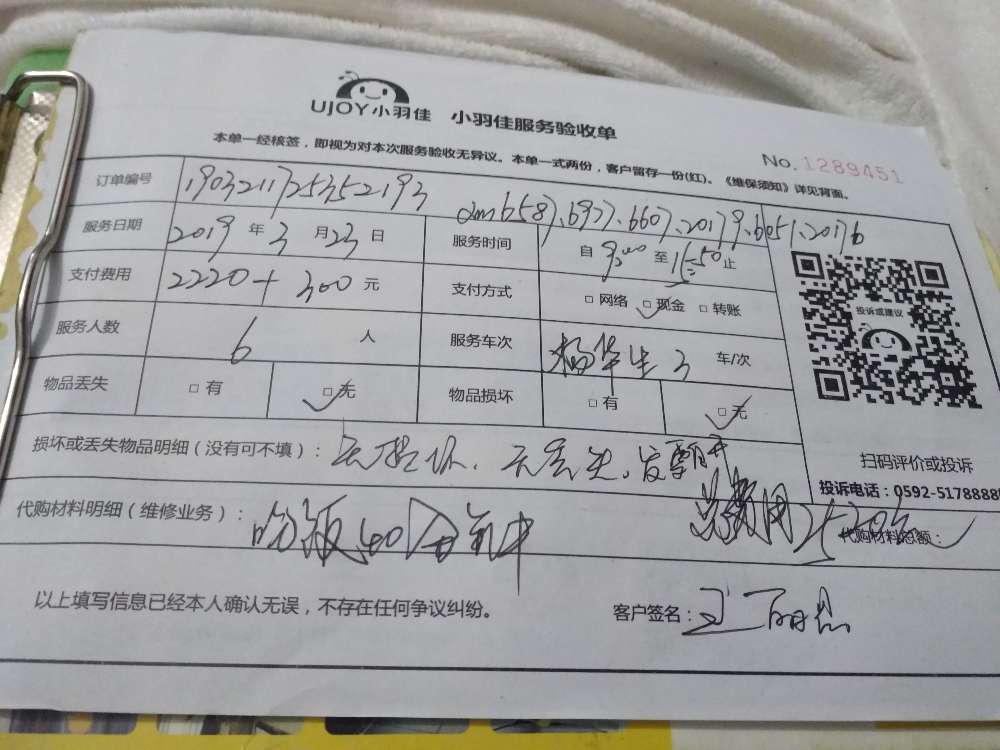 UJOY小羽佳 小羽佳服务验收单
本单一经核签，即视为对本次服务验收无异议。本单一式两份，客户留存一份(红)。《维保须知》详见背面。
No.1289451
订单编号 1903211725352193
服务日期 2019 年 3 月 23 日 服务时间 自 9:00 至 16:50 止
支付费用 2220+300 元 支付方式 □ 网络 □ 现金 □ 转账
服务人数 6 人 服务车次 杨华生 3 车/次
物品丢失 □ 有 □ 无 物品损坏 □ 有 □ 无
投诉或建议
扫码评价或投诉
投诉电话：0592-5178888
损坏或丢失物品明细（没有可不填）： 无损坏、无丢失、发票
代购材料明细（维修业务）： 总费用 代购材料总额：
以上填写信息已经本人确认无误，不存在任何争议纠纷。 客户签名：